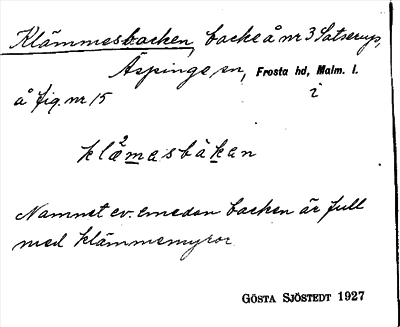 Klämmesbacken, backe å nr 3 Satserup,
Äspinge sn, Frosta hd, Malm. l.
å fig. nr 15 i
klæ²masbàkan
Namnet ev. emedan backen är full
med klämmemyror.
GÖSTA SJÖSTEDT 1927